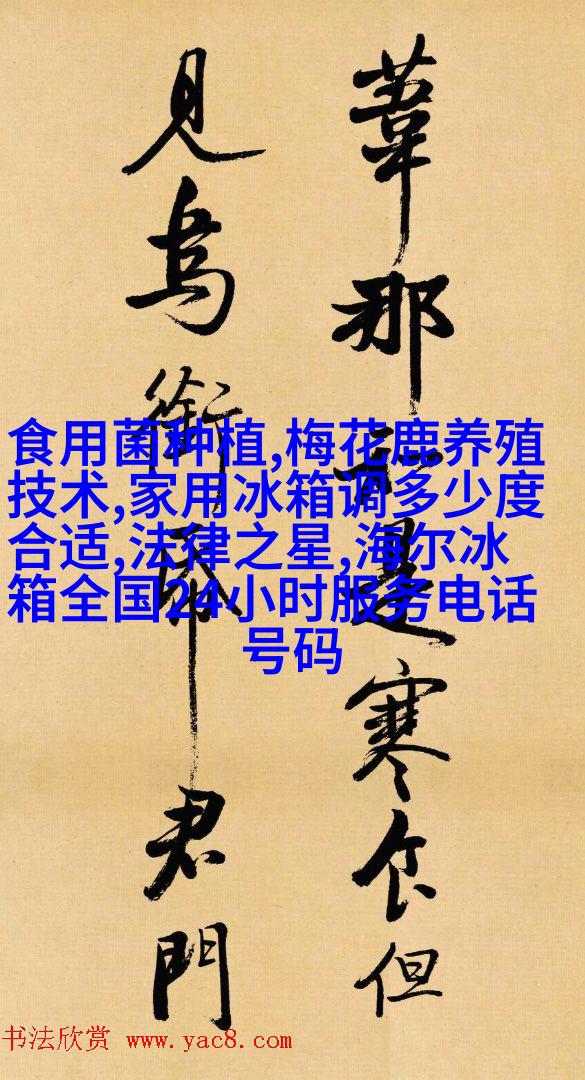 葦那知是寒食但
見烏銜帋君門
食用菌种植,梅花鹿养殖
技术,家用冰箱调多少度
合适,法律之星,海尔冰
箱全国24小时服务电话
号码
书法欣赏 www.yac8.com